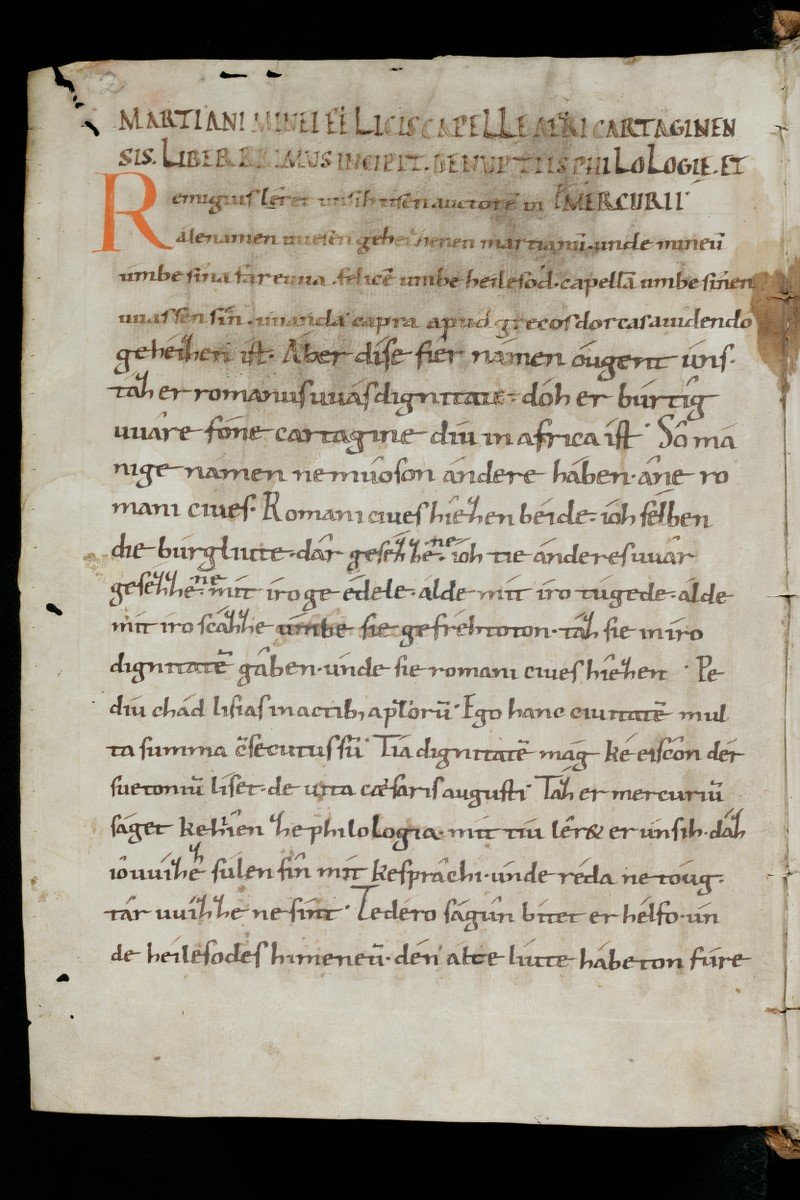 MARTIANI MINEI FELICIS CAPELLE AFRI CARTAGINEN
SIS. LIBER PRIMUS INCIPIT. DE NUPTIIS PHILOLOGIE. ET
Remigius lêret unsih tisên auctorē in MERCURII
álenamen uuesen geheizenen martianū. unde mineū
umbe sina fareuua. felicē umbe heilesôd. capellā umbe sînen
uuassen sin. uuanda capra apud grecos dorcas a uidendo
gehéizen íst. Áber díse fîer námen óugent úns.
táz er romanus uuás dignitate. dóh er búrtîg
uuâre fóne cartagine díu in africa íst. Sô má
nige námen nemûoson ándere háben. âne ro
mani ciues. Romani ciues hîezen béide. ióh sélben
die búrgliute. dâr geséʒʒene. ióh tie ánderesuuâr
geséʒʒene. mít íro ge édele. álde mít íro túgede. álde
mít íro scázze úmbe sie gefréhtoton. táz sie in íro
dignitatē gâben. únde sie romani ciues hîezen. Pe
diu chád lisias in actib, aplorū. Ego hanc ciuitatē mul
ta summa c̄secutus sū. Tía dignitatē mág ke éiscôn dér
suetoniū líset. de uita cæsaris augusti. Táz er mercuriū
ságet kehîen ze philologia. mít tíu lêr& er únsih. dáz
îo uuízzē súlen sîn mít kesprâchi. únde réda netóug.
târ uuízze ne sínt. Te dero ságûn bítet er hélfo. ún
de héilesodes himeneū. dén álte líute hábeton fúre